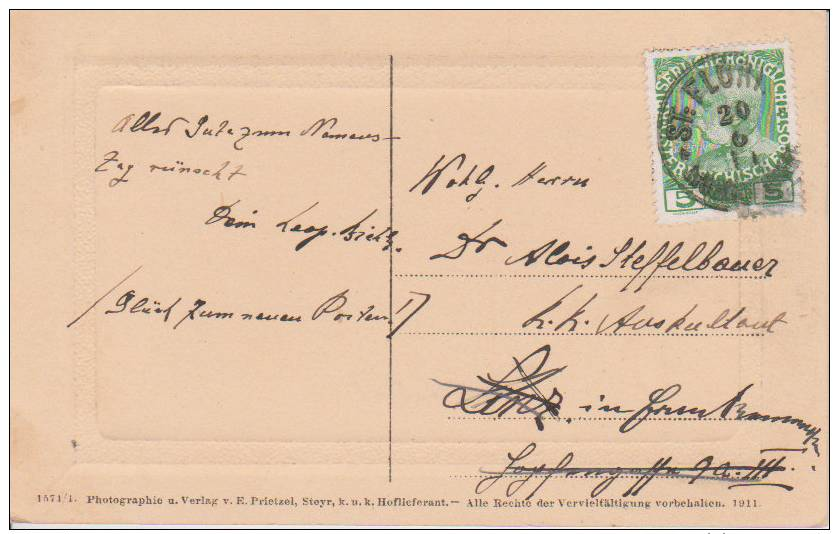 Alles Gute zum Namens-
Tag wünscht
Dein Leop.
(Glück zum neuen Posten!)
Wohlg. Herrn
Dr Alois Steffelbauer
k. k. Auskultant
Linz. in
9a. III.
ST. FLORI
20
KAISERLICHE KÖNIGLICHE
ÖSTERREICHISCHE
5
5
1571/1. Photographie u. Verlag v. E. Prietzel, Steyr, k. u. k. Hoflieferant.— Alle Rechte der Vervielfältigung vorbehalten. 1911.